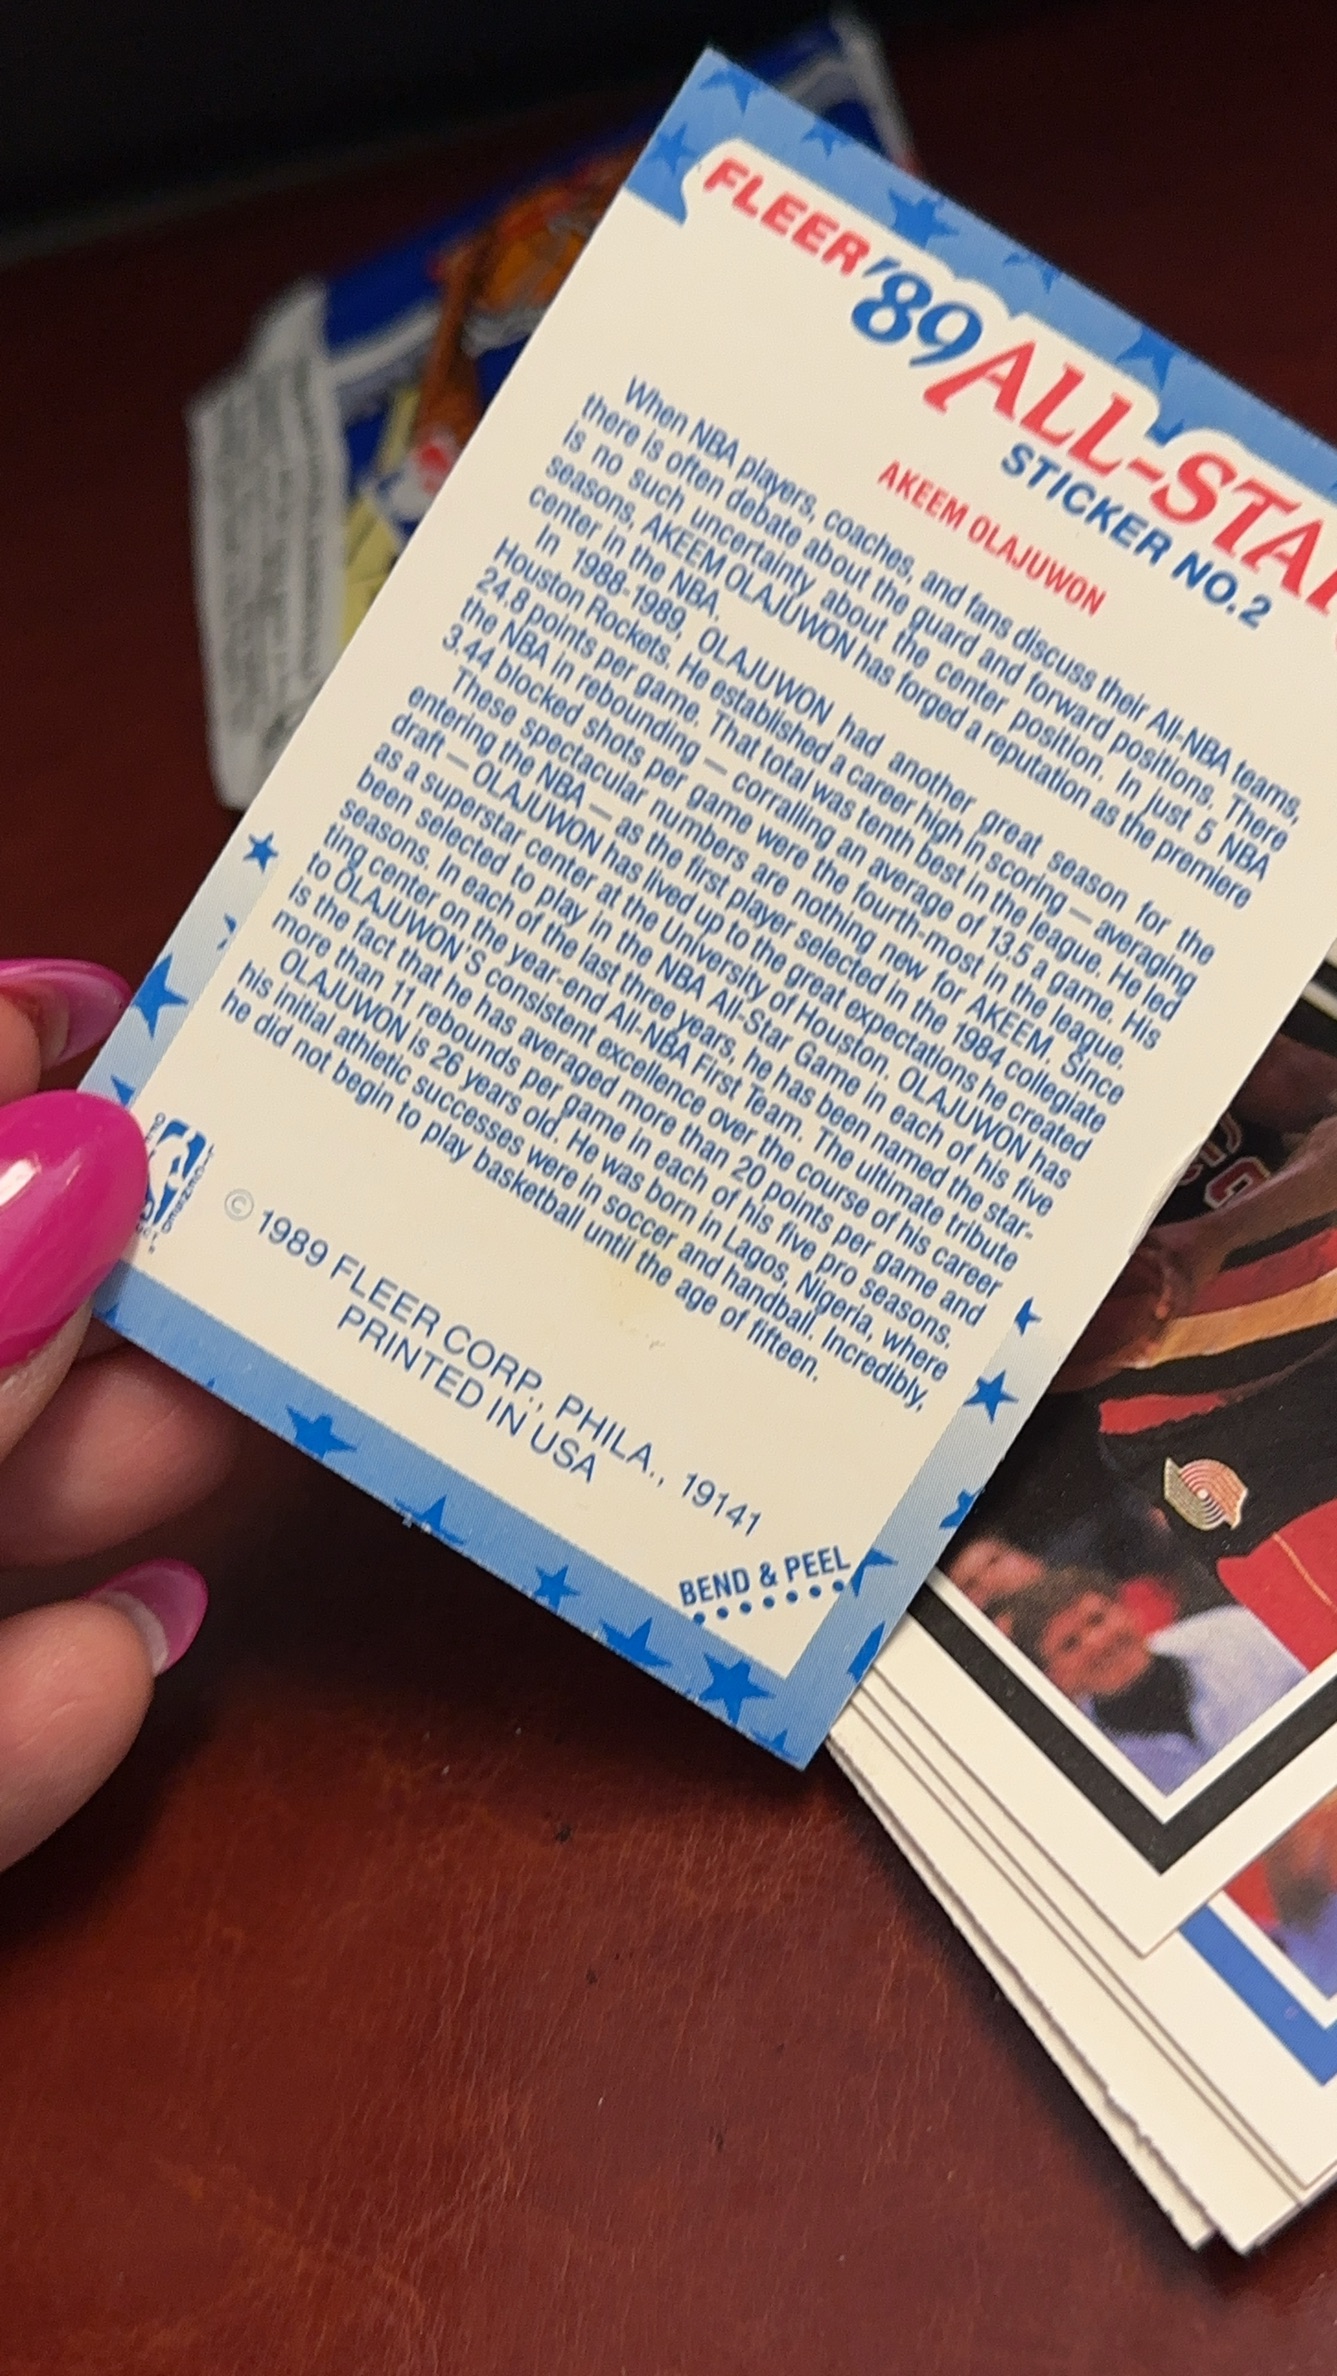 FLEER '89 ALL-STA
STICKER NO.2
AKEEM OLAJUWON
When NBA players, coaches, and fans discuss their All-NBA teams,
there is often debate about the guard and forward positions. There
is no such uncertainty about the center position. In just 5 NBA
seasons, AKEEM OLAJUWON has forged a reputation as the premiere
center in the NBA.
In 1988-1989, OLAJUWON had another great season for the
Houston Rockets. He established a career high in scoring — averaging
24.8 points per game. That total was tenth best in the league. He led
the NBA in rebounding — corralling an average of 13.5 a game. His
3.44 blocked shots per game were the fourth-most in the league.
These spectacular numbers are nothing new for AKEEM. Since
entering the NBA — as the first player selected in the 1984 collegiate
draft — OLAJUWON has lived up to the great expectations he created
as a superstar center at the University of Houston. OLAJUWON has
been selected to play in the NBA All-Star Game in each of his five
seasons. In each of the last three years, he has been named the star-
ting center on the year-end All-NBA First Team. The ultimate tribute
to OLAJUWON'S consistent excellence over the course of his career
is the fact that he has averaged more than 20 points per game and
more than 11 rebounds per game in each of his five pro seasons.
OLAJUWON is 26 years old. He was born in Lagos, Nigeria, where
his initial athletic successes were in soccer and handball. Incredibly,
he did not begin to play basketball until the age of fifteen.
© 1989 FLEER CORP., PHILA., 19141
PRINTED IN USA
BEND & PEEL